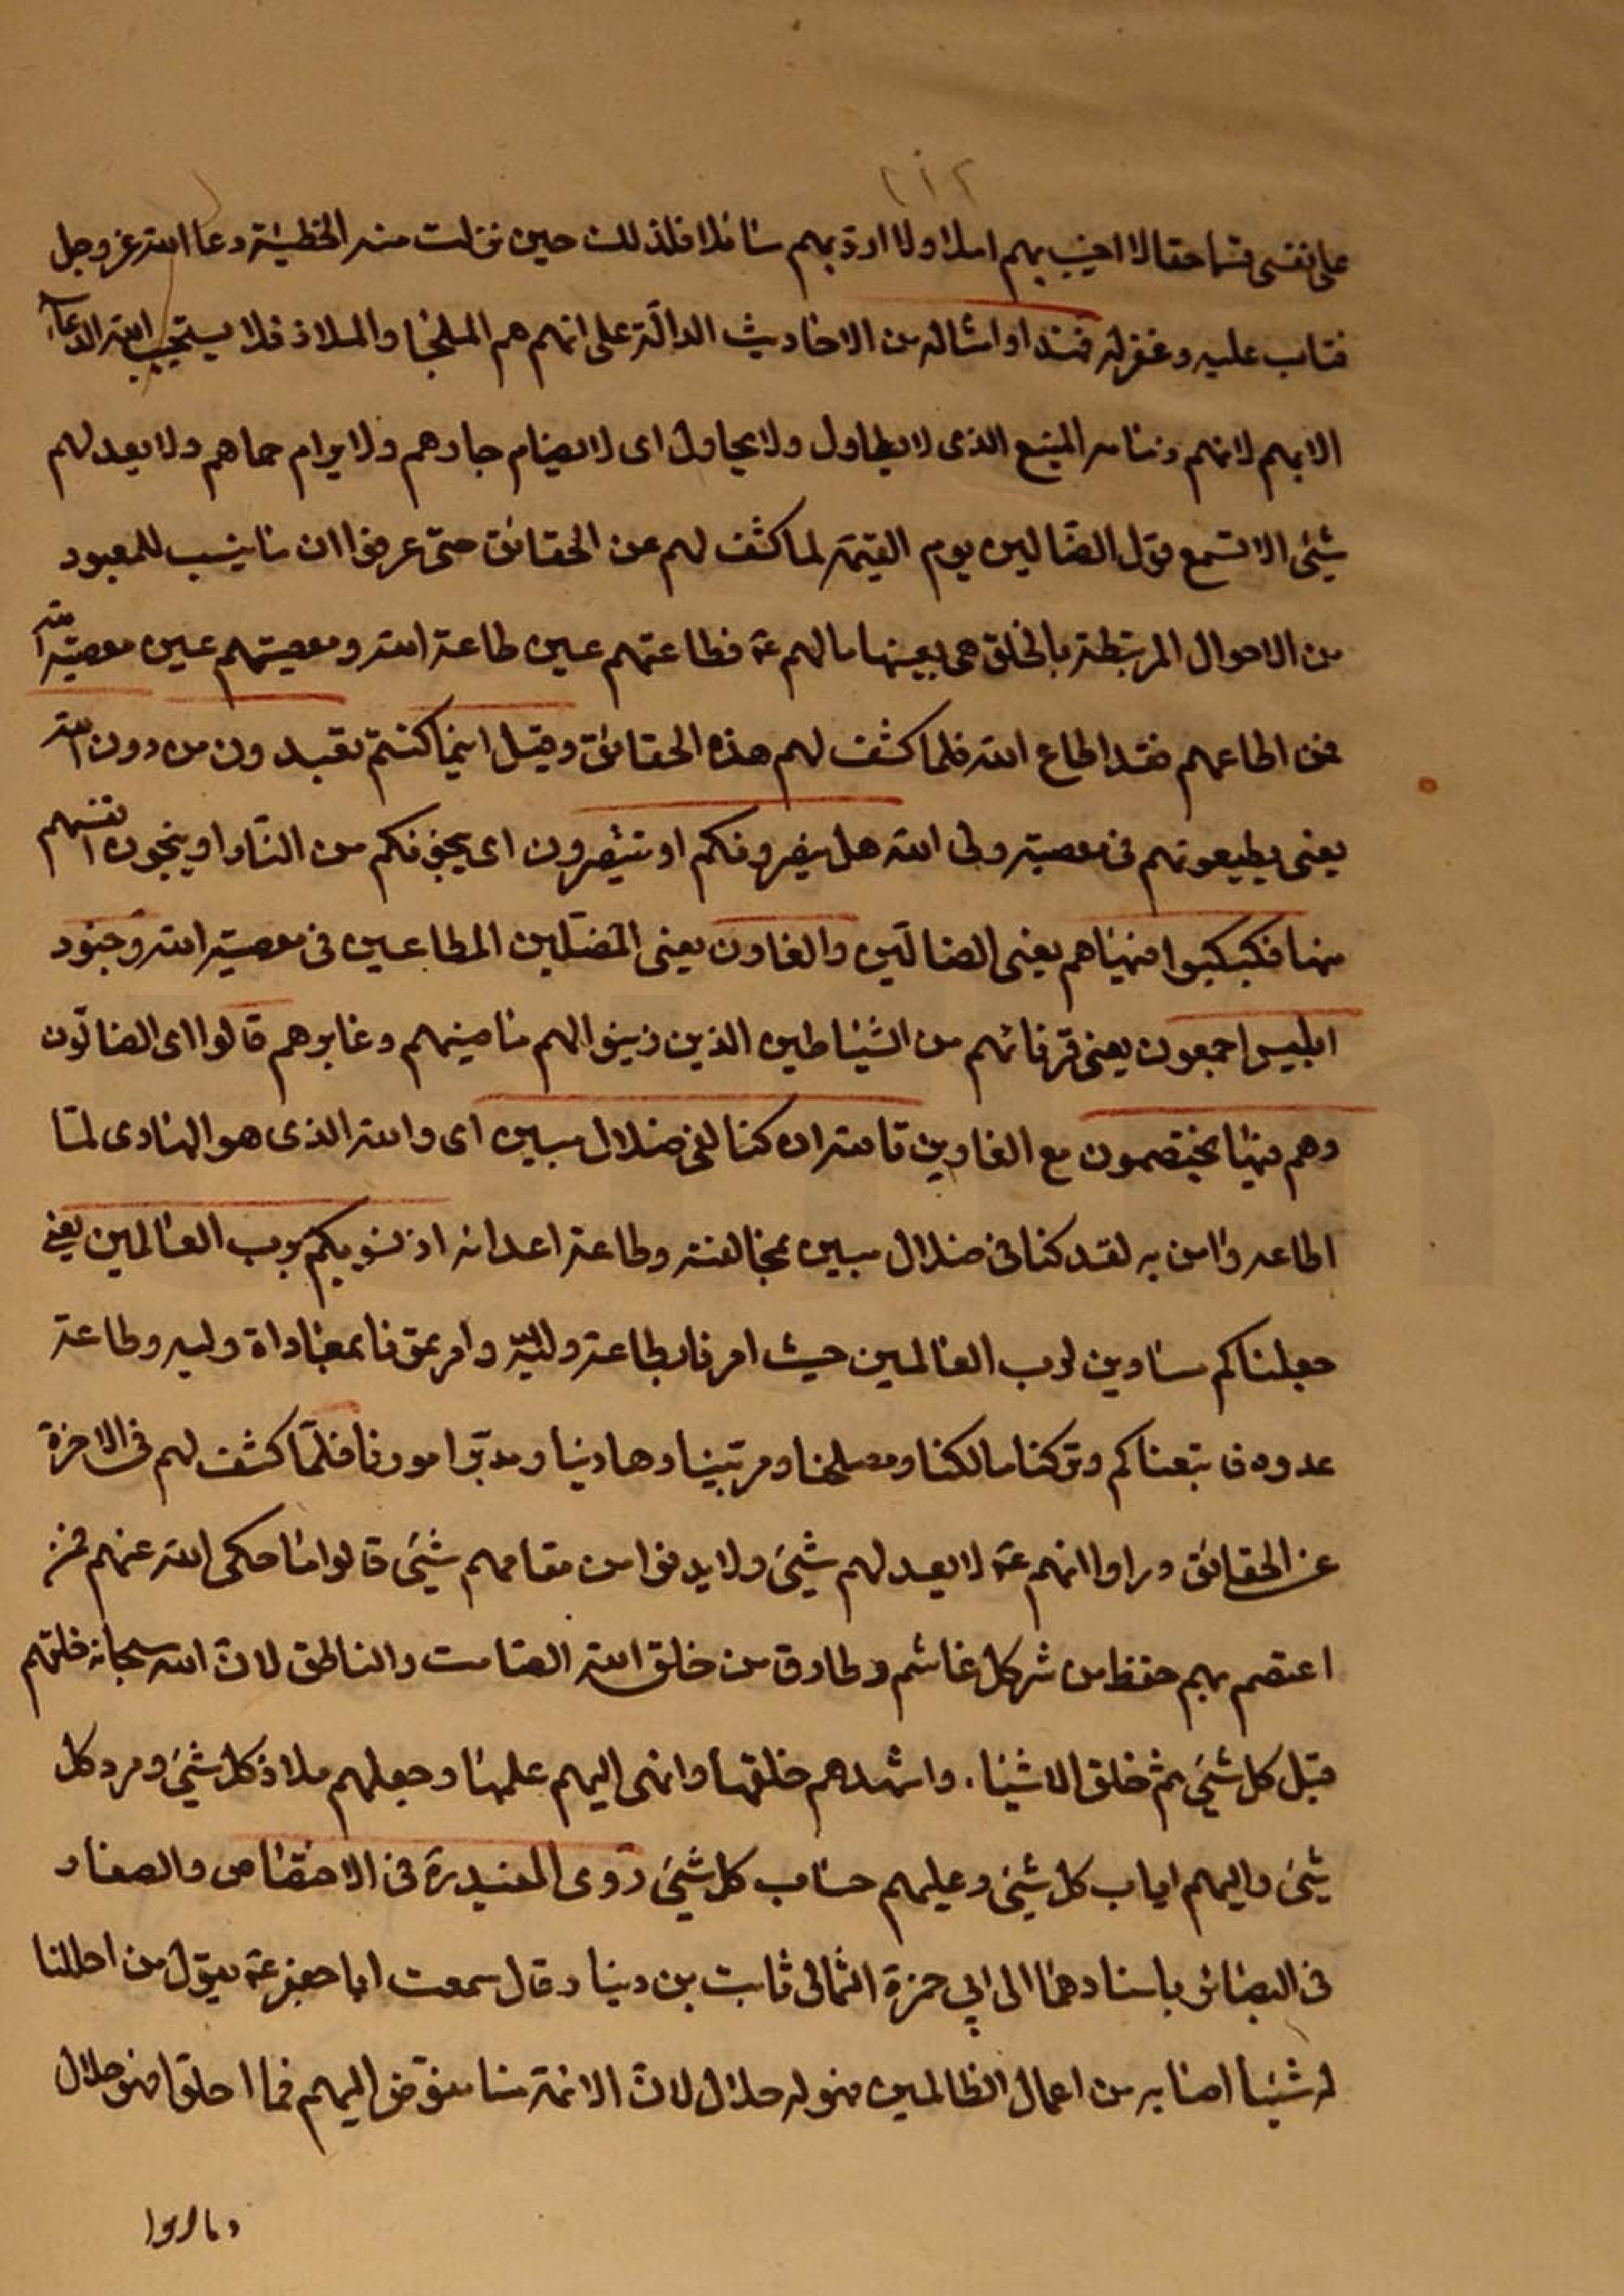 على نفسى قسما حقا لا اخيب بهم املا ولا ارد بهم سائلا فلذلك حين نزلت منه الخطيئة دعا الله عز وجل
فتاب عليه وغفر له فهذا وامثاله من الاحاديث الدالّة على انهم هم الملجأ والملاذ فلا يستجيب الله الدعاء
الا بهم لانهم ذمامه المنيع الذى لا يطاول ولا يحاول اى لا يضام جارهم ولا يرام حماهم ولا يعدلهم
شيئ الا تسمع قول الضالين يوم القيمة لما كشف لهم عن الحقائق حتى عرفوا ان ما ينسب للمعبود
من الاحوال المرتبطة بالخلق هى بعينها ما لهم عه فطاعتهم عين طاعة الله ومعصيتهم عين معصية الله
فمن اطاعهم فقد اطاع الله فلما كشف لهم هذه الحقائق وقيل اينما كنتم تعبدون من دون الله
يعنى يطيعونهم فى معصية ولى الله هل ينصرونكم او ينتصرون اى ينجونكم من النار او ينجون انفسهم
منها فكبكبوا فيها هم يعنى الضالّين والغاون يعنى المضلّين المطاعين فى معصية الله وجنود
ابليس اجمعون يعنى قرنائهم من الشياطين الذين زينوا لهم ماضيهم وغابرهم قالوا اى الضالّون
وهم فيها يختصمون مع الغاوين تالله ان كنا لفى ضلال مبين اى والله الذى هو الهادى لمن
اطاعه وامن به لقد كنا فى ضلال مبين بمخالفته وطاعة اعدائه اذ نسويكم برب العالمين يعنى
جعلناكم مساوين لرب العالمين حيث امرنا بطاعة وليّه وامرتمونا بمعاداة وليه وطاعة
عدوه فاتبعناكم وتركنا مالكنا ومصلحنا ومربّينا وهادينا ومدبّر امورنا فلمّا كشف لهم فى الاخرة
عن الحقائق وراوا انهم عه لا يعدلهم شيئ ولا يدنوا من مقامهم شيئ قالوا ما حكى الله عنهم فمن
اعتصم بهم حفظ من شر كل غاشم وطارق من خلق الله الصامت والناطق لان الله سبحانه خلقهم
قبل كل شيئ ثم خلق الاشياء واشهدهم خلقها وانهى اليهم علمها وجعلهم ملاذ كل شيئ ومرد كل
شيئ واليهم اياب كل شيئ وعليهم حساب كل شيئ روى المفيد ره فى الاختصاص والصفار
فى البصائر باسنادهما الى ابي حمزة الثمالى ثابت بن دينار قال سمعت ابا جعفر عه يقول من احللنا
له شيئا اصابه من اعمال الظالمين فهو له حلال لان الائمة منا مفوّض اليهم فما احلوا فهو حلال